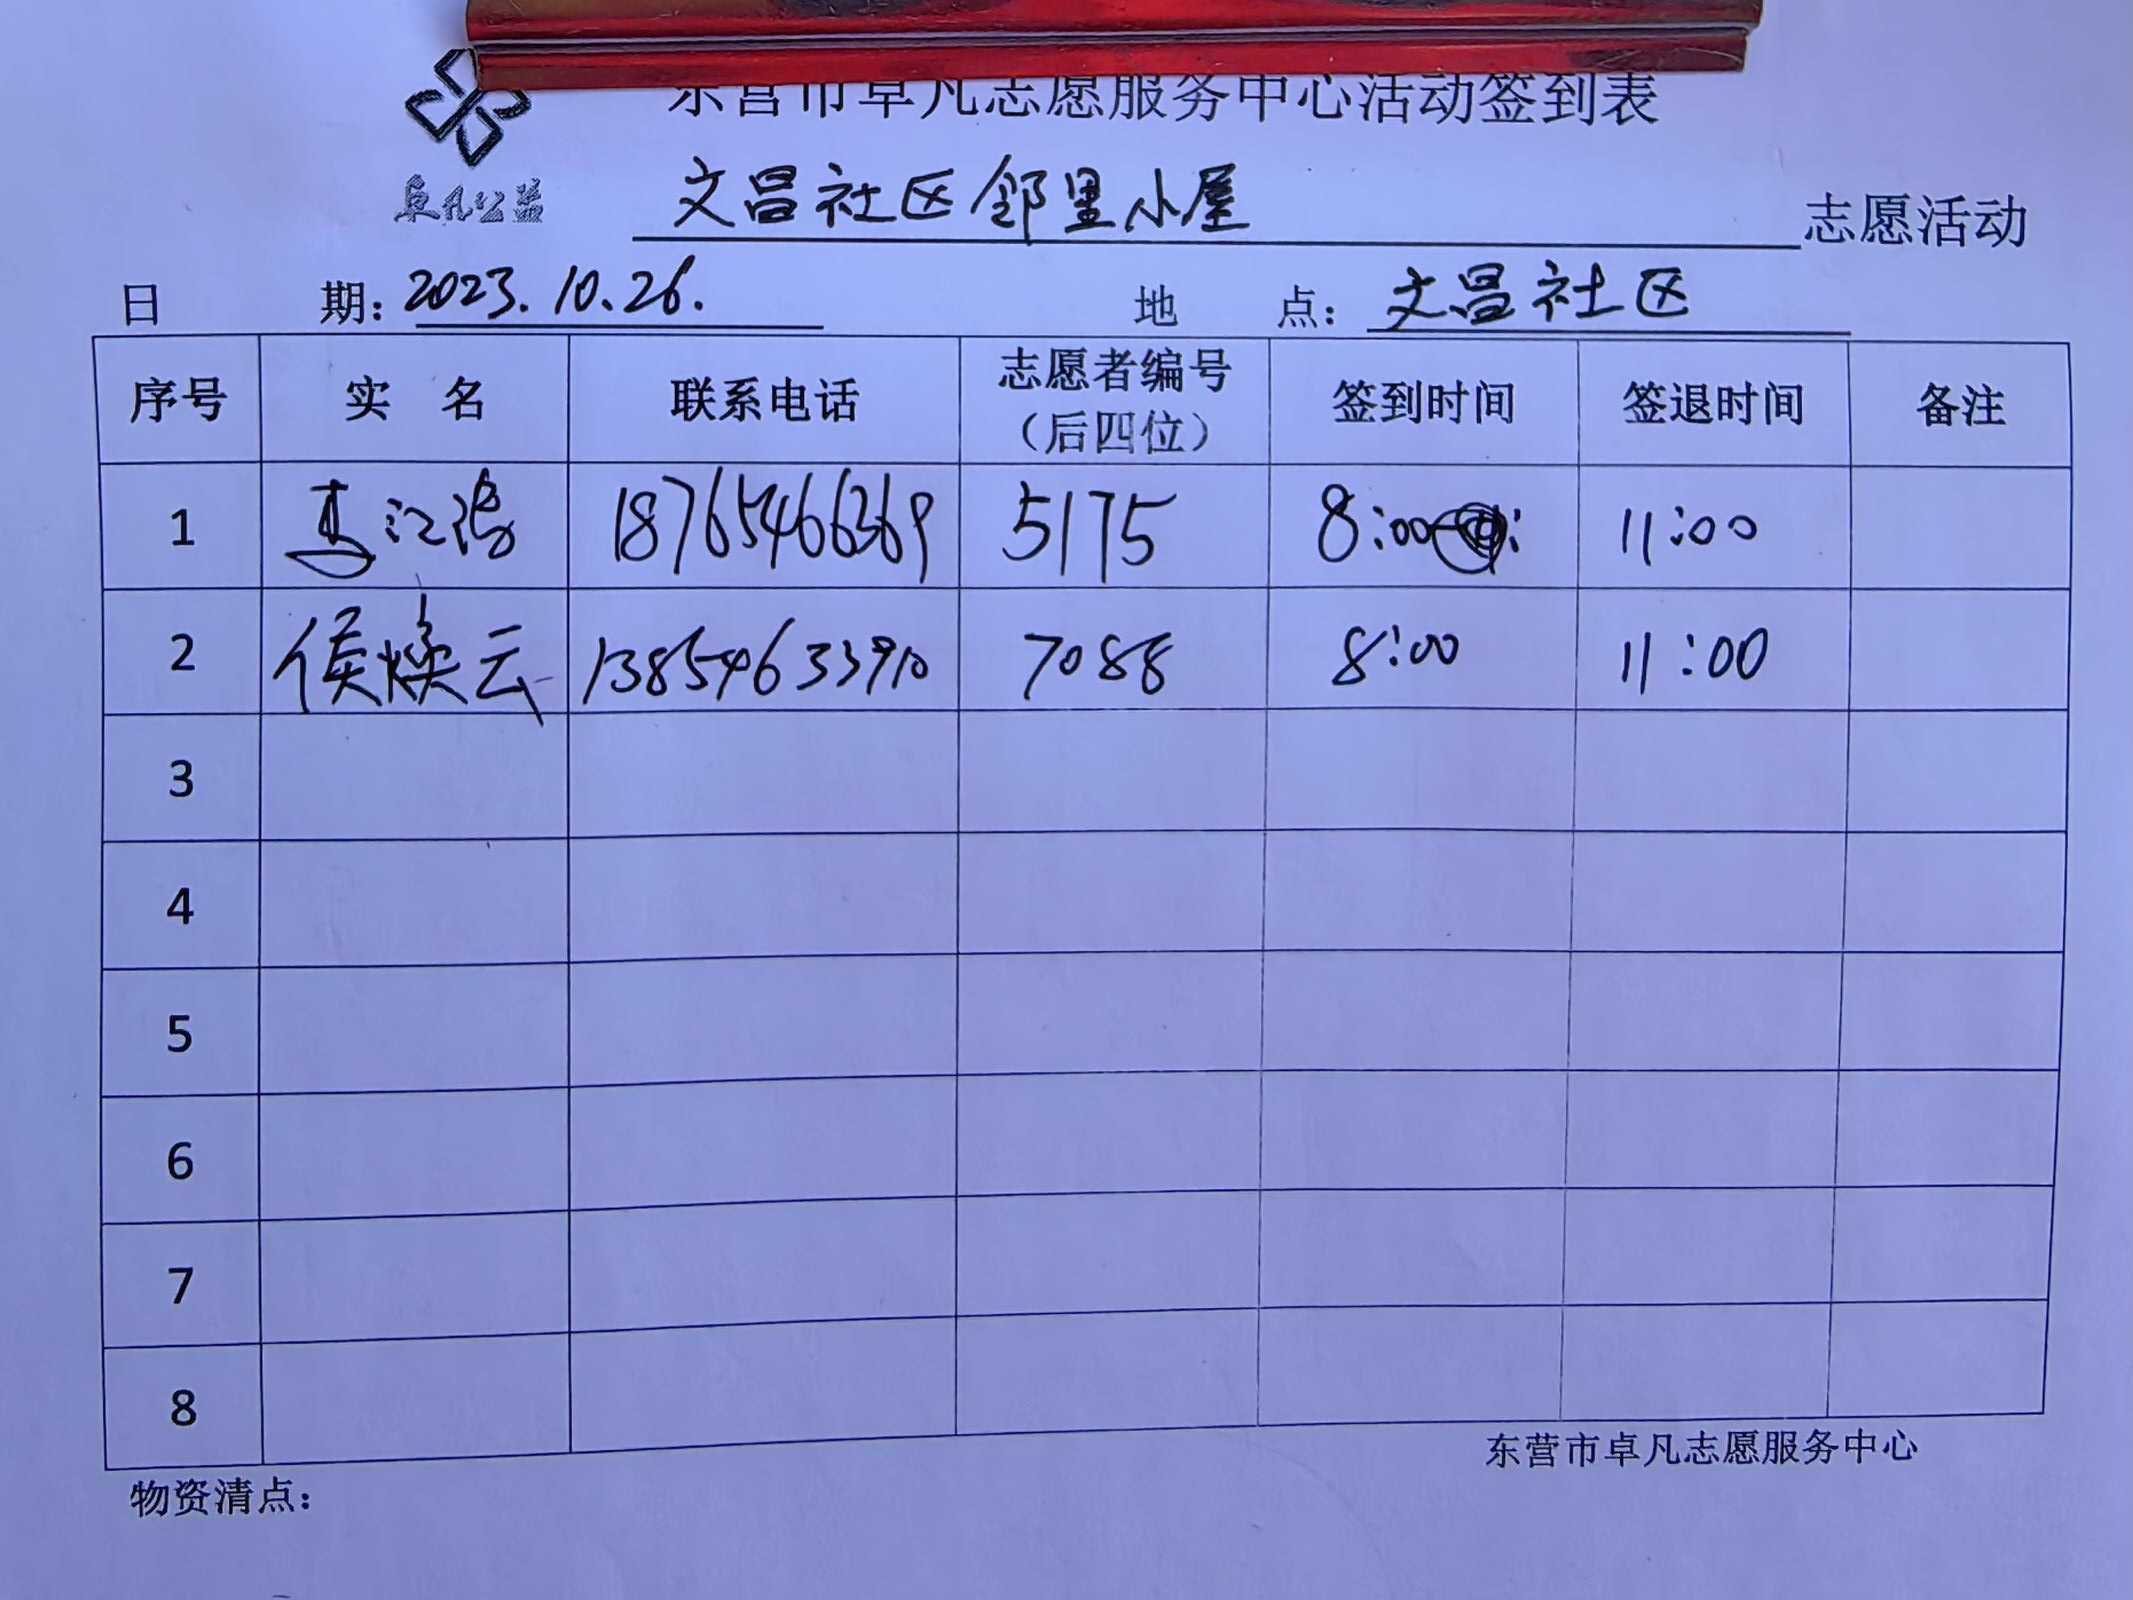 东营市卓凡志愿服务中心活动签到表
卓凡公益
文昌社区邻里小屋 志愿活动
日 期: 2023.10.26. 地 点: 文昌社区
序号 实 名 联系电话 志愿者编号（后四位） 签到时间 签退时间 备注
1 江涛 18765466369 5175 8:00 11:00
2 侯焕云 13854633910 7088 8:00 11:00
3
4
5
6
7
8
东营市卓凡志愿服务中心
物资清点: